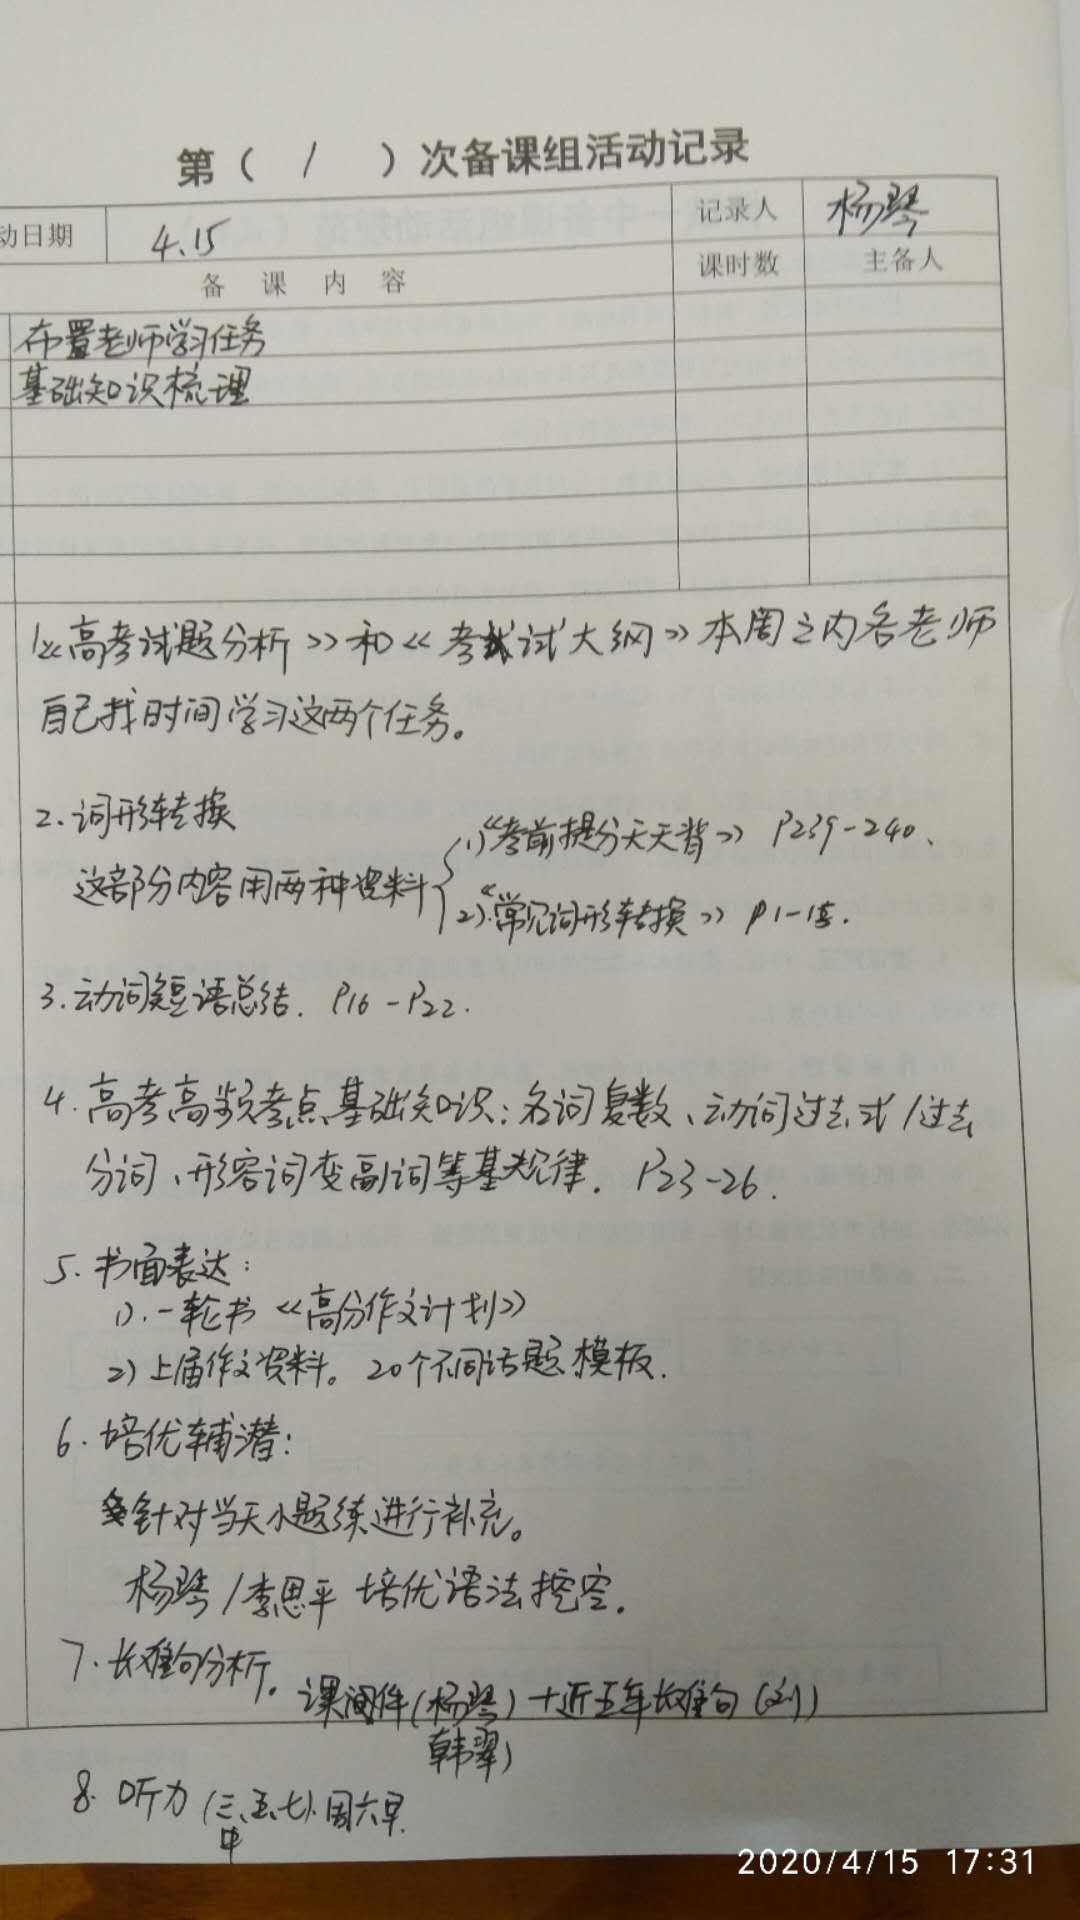 第（ 1 ）次备课组活动记录
动日期 4.15 记录人 杨琴
备课内容 课时数 主备人
布置老师学习任务
基础知识梳理
1.《高考试题分析》和《考试大纲》本周之内各老师
自己找时间学习这两个任务。
2.词形转换
这部分内容用两种资料
1)《考前提分天天背》 P239-240.
2)《常见词形转换》 P1-15.
3.动词短语总结. P16-P22.
4.高考高频考点基础知识:名词复数、动词过去式/过去
分词、形容词变副词等基规律. P23-26.
5.书面表达:
1).一轮书《高分作文计划》
2)上届作文资料。20个不同话题模板.
6.培优辅潜:
针对当天小题练进行补充。
杨琴/李思平 培优语法挖空.
7.长难句分析.
课件(杨琴)+近五年长难句(刘)
韩翠)
8.听力(三、五、七).周六早.
中
2020/4/15 17:31